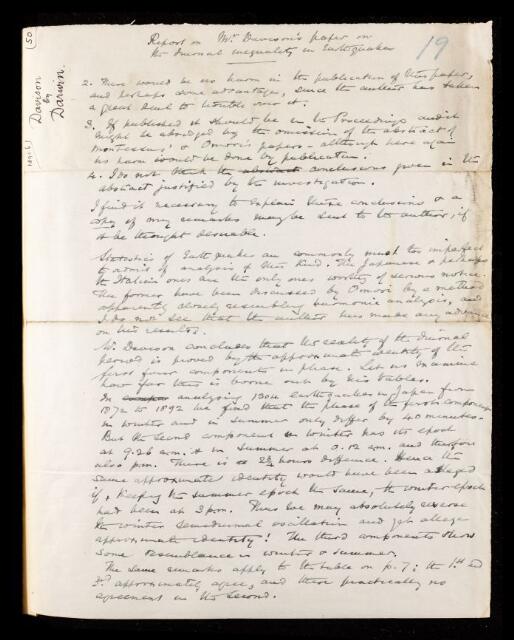 (50
19
Davison
by
Darwin
Report on Mr Davison's paper on
the diurnal inequality in Earthquakes
2. There would be no harm in the publication of this paper,
and perhaps some advantage, since the author has taken
a great deal of trouble over it.
3. If published it should be in the Proceedings and it
might be abridged by the omission of the abstract of
Montessus' & Omori's papers – although here again
no harm would be done by publication.
4. I do not think the abstract conclusions given in the
abstract justified by the investigation.
I find it necessary to explain these conclusions & a
copy of my remarks may be sent to the author, if
it be thought desirable.
Statistics of Earthquakes are commonly much too imperfect
to admit of analysis of this kind. The Japanese & perhaps
the Italian ones are the only ones worthy of serious notice.
The former have been discussed by Omori by a method
apparently closely resembling harmonic analysis, and
I do not see that the author has made any advance
on his results.
Mr. Davison concludes that the reality of the diurnal
period is proved by the approximate identity of the
first four components in phase. Let us examine
how far this is borne out by his tables.
In analysing 1304 earthquakes in Japan from
1872 to 1892 we find that the phase of the first component
in winter and in summer only differ by 40 minutes–
But the second component in winter has its epoch
at 9.26 a.m. & in summer at 0.12 a.m. and therefore
also p.m. There is a 2¾ hours difference. Hence the
same approximate identity would have been alleged
if, keeping the summer epoch the same, the winter epoch
had been at 3 p.m. Thus we may absolutely reverse
the winter semidiurnal oscillation and yet allege
approximate identity! The third components show
some resemblance in winter & summer.
The same remarks apply to the table on p. 7; the 1st and
3d approximately agree, and there practically no
agreement in the second.